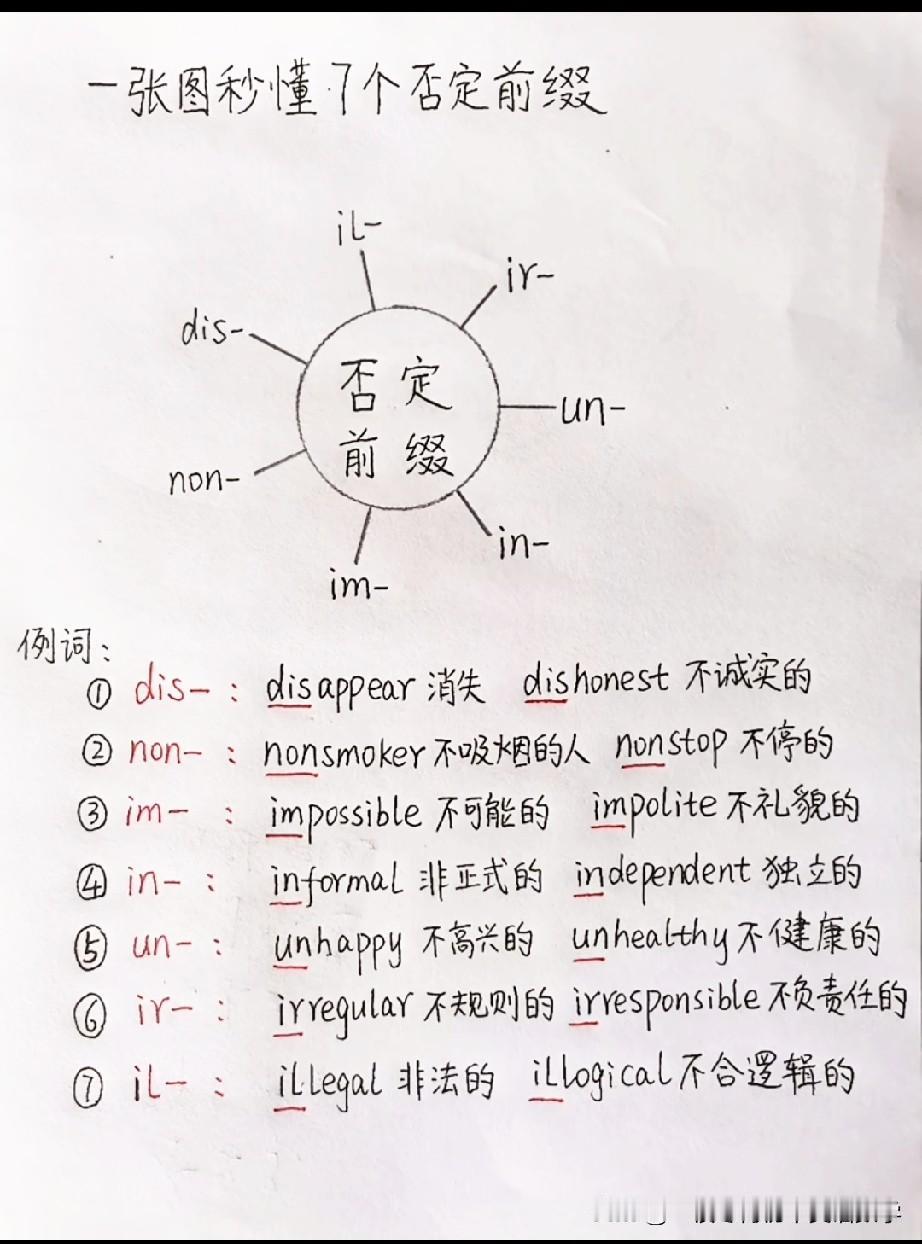 一张图秒懂7个否定前缀
il-
ir-
dis-
否定
un-
前缀
non-
in-
im-
例词：
① dis-： disappear 消失 dishonest 不诚实的
② non-： nonsmoker 不吸烟的人 nonstop 不停的
③ im-： impossible 不可能的 impolite 不礼貌的
④ in-： informal 非正式的 independent 独立的
⑤ un-： unhappy 不高兴的 unhealthy 不健康的
⑥ ir-： irregular 不规则的 irresponsible 不负责任的
⑦ il-： illegal 非法的 illogical 不合逻辑的